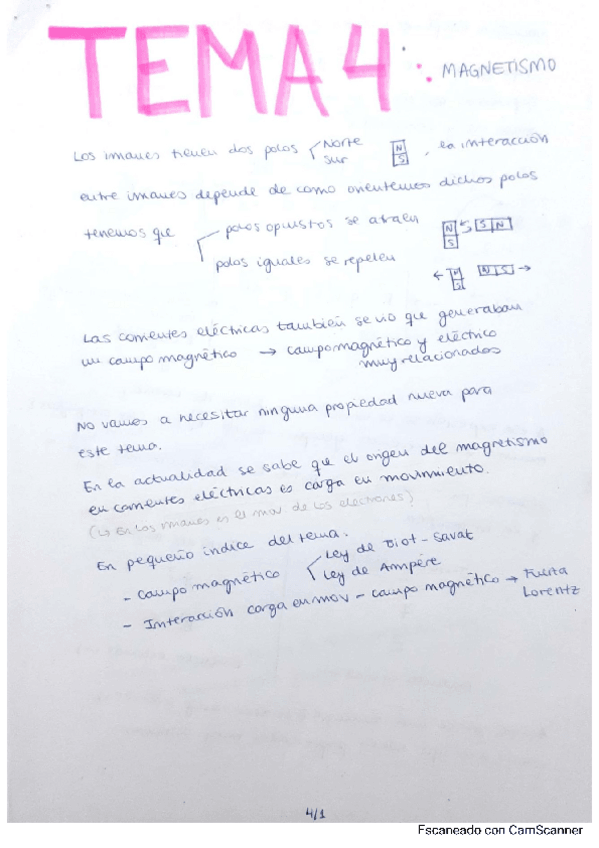 TEMA 4: MAGNETISMO
Los imanes tienen dos polos Norte N , la interacción
sur S
entre imanes depende de como orientemos dichos polos
tenemos que polos opuestos se atraen N S S N
polos iguales se repelen N S N S
Las corrientes eléctricas también se vio que generaban
un campo magnético → campo magnético y eléctrico
muy relacionados
No vamos a necesitar ninguna propiedad nueva para
este tema.
En la actualidad se sabe que el origen del magnetismo
en corrientes eléctricas es carga en movimiento.
(↳ En los imanes es el mov de los electrones)
En pequeño índice del tema.
- campo magnético Ley de Biot-Savat
Ley de Ampére
- Interacción carga en mov - campo magnético → Fuerza
Lorentz
4/1
Escaneado con CamScanner